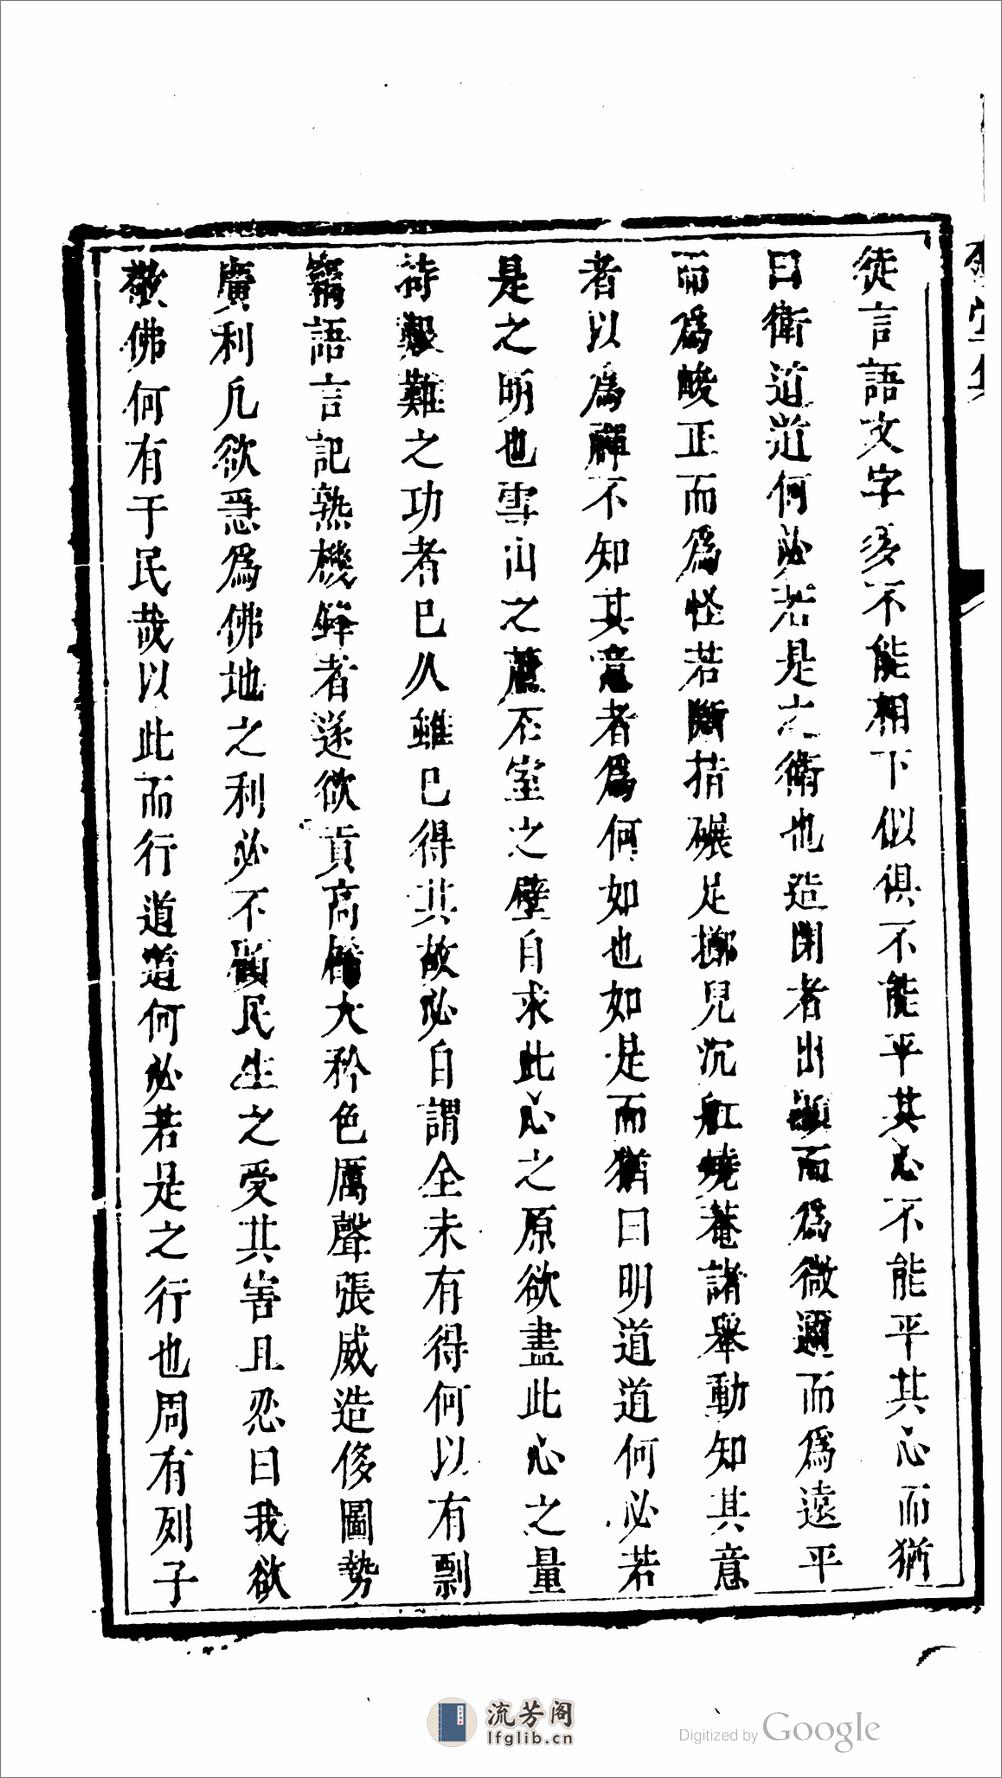 徒言語文字多不能相下似俱不能平其心不能平其心而猶
曰衛道道何必若是之衛也造閉者出顯而爲微邇而爲遠平
而爲峻正而爲怪若斷指碾足擲兒沉舡燒菴諸舉動知其意
者以爲禪不知其意者爲何如也如是而猶曰明道道何必若
是之明也雪山之蘆石室之壁自求此心之原欲盡此心之量
待艱難之功者已久雖已得其故必自謂全未有得何以有剽
竊語言記熟機鋒者遂欲貢高大矜色厲聲張威造侈圖勢
廣利凡欲急爲佛地之利必不顧民生之受其害且忍曰我欲
敬佛何有于民哉以此而行道道何必若是之行也周有列子
流芳阁
lfglib.cn
Digitized by Google